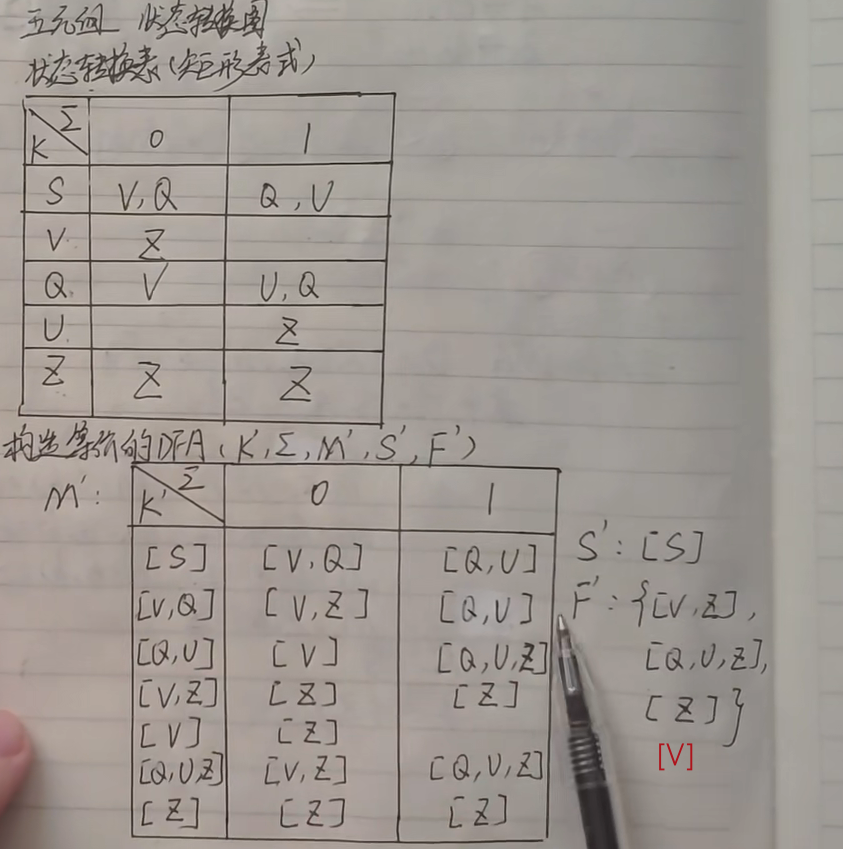 五元组 状态转换图
状态转换表(矩形表式)
K Σ 0 1
S V,Q Q,U
V Z
Q V U,Q
U Z
Z Z Z
构造等价的DFA(K',Σ,M',S',F')
M':
K' Σ 0 1
[S] [V,Q] [Q,U]
[V,Q] [V,Z] [Q,U]
[Q,U] [V] [Q,U,Z]
[V,Z] [Z] [Z]
[V] [Z]
[Q,U,Z] [V,Z] [Q,U,Z]
[Z] [Z] [Z]
S':[S]
F':{[V,Z],
[Q,U,Z],
[Z]}
[V]